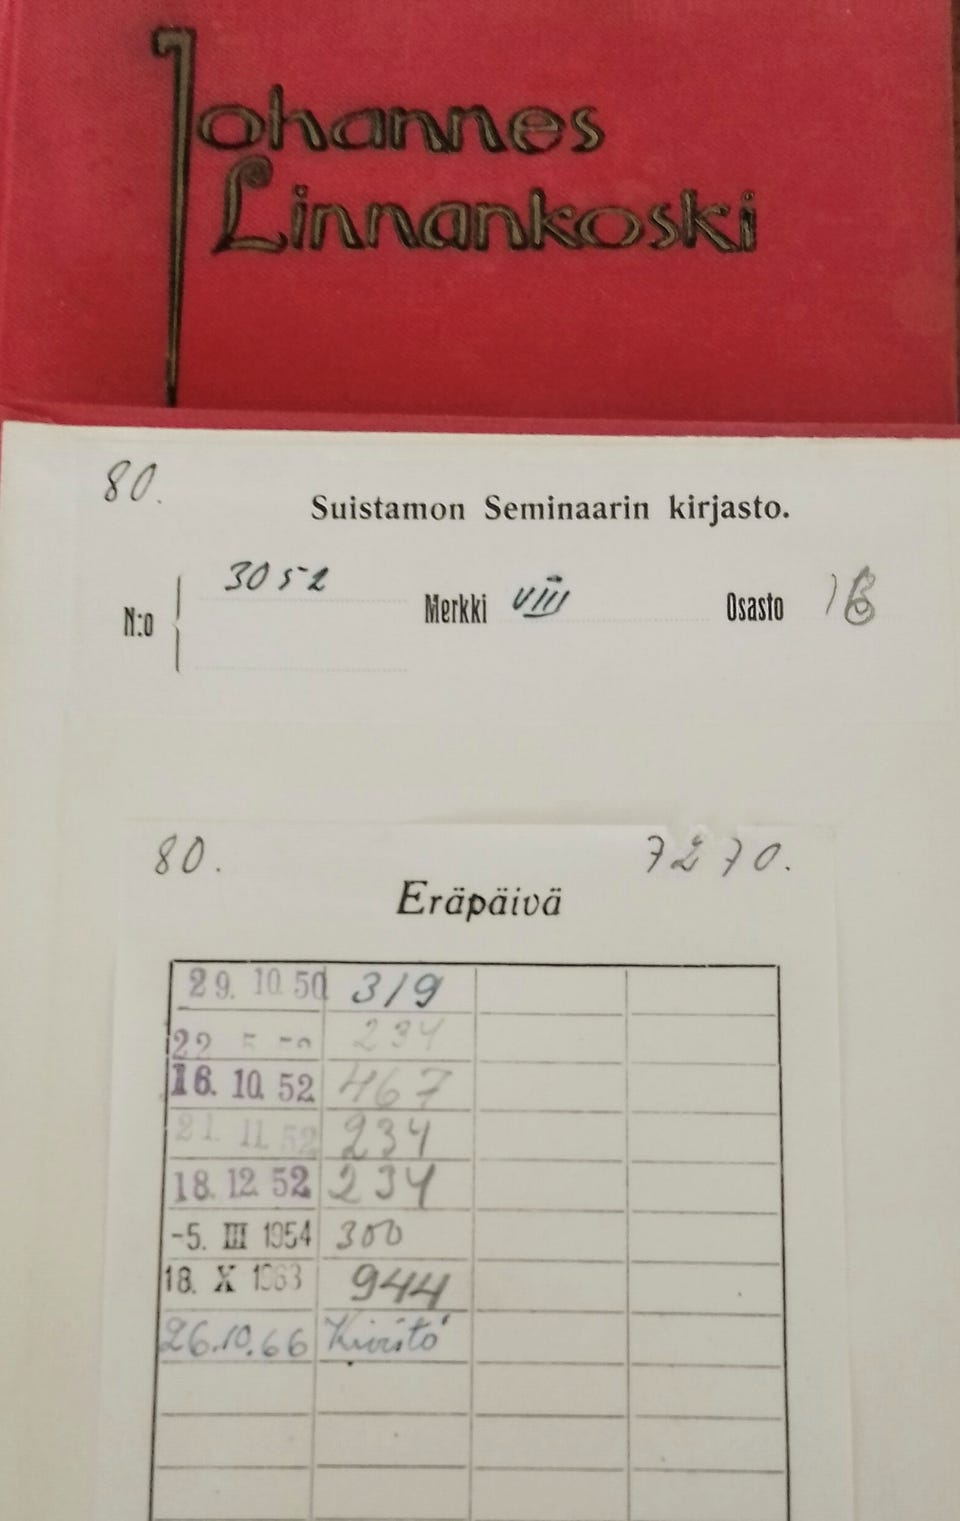 Johannes
Linnankoski
80.
Suistamon Seminaarin kirjasto.
3052
N:o Merkki VIII Osasto
80. 7270.
Eräpäivä
29. 10. 50 319
22 5 234
16. 10. 52 467
21. 11. 52 234
18. 12. 52 234
-5. III 1954 300
18. X 1963 944
26.10.66 Kivistö